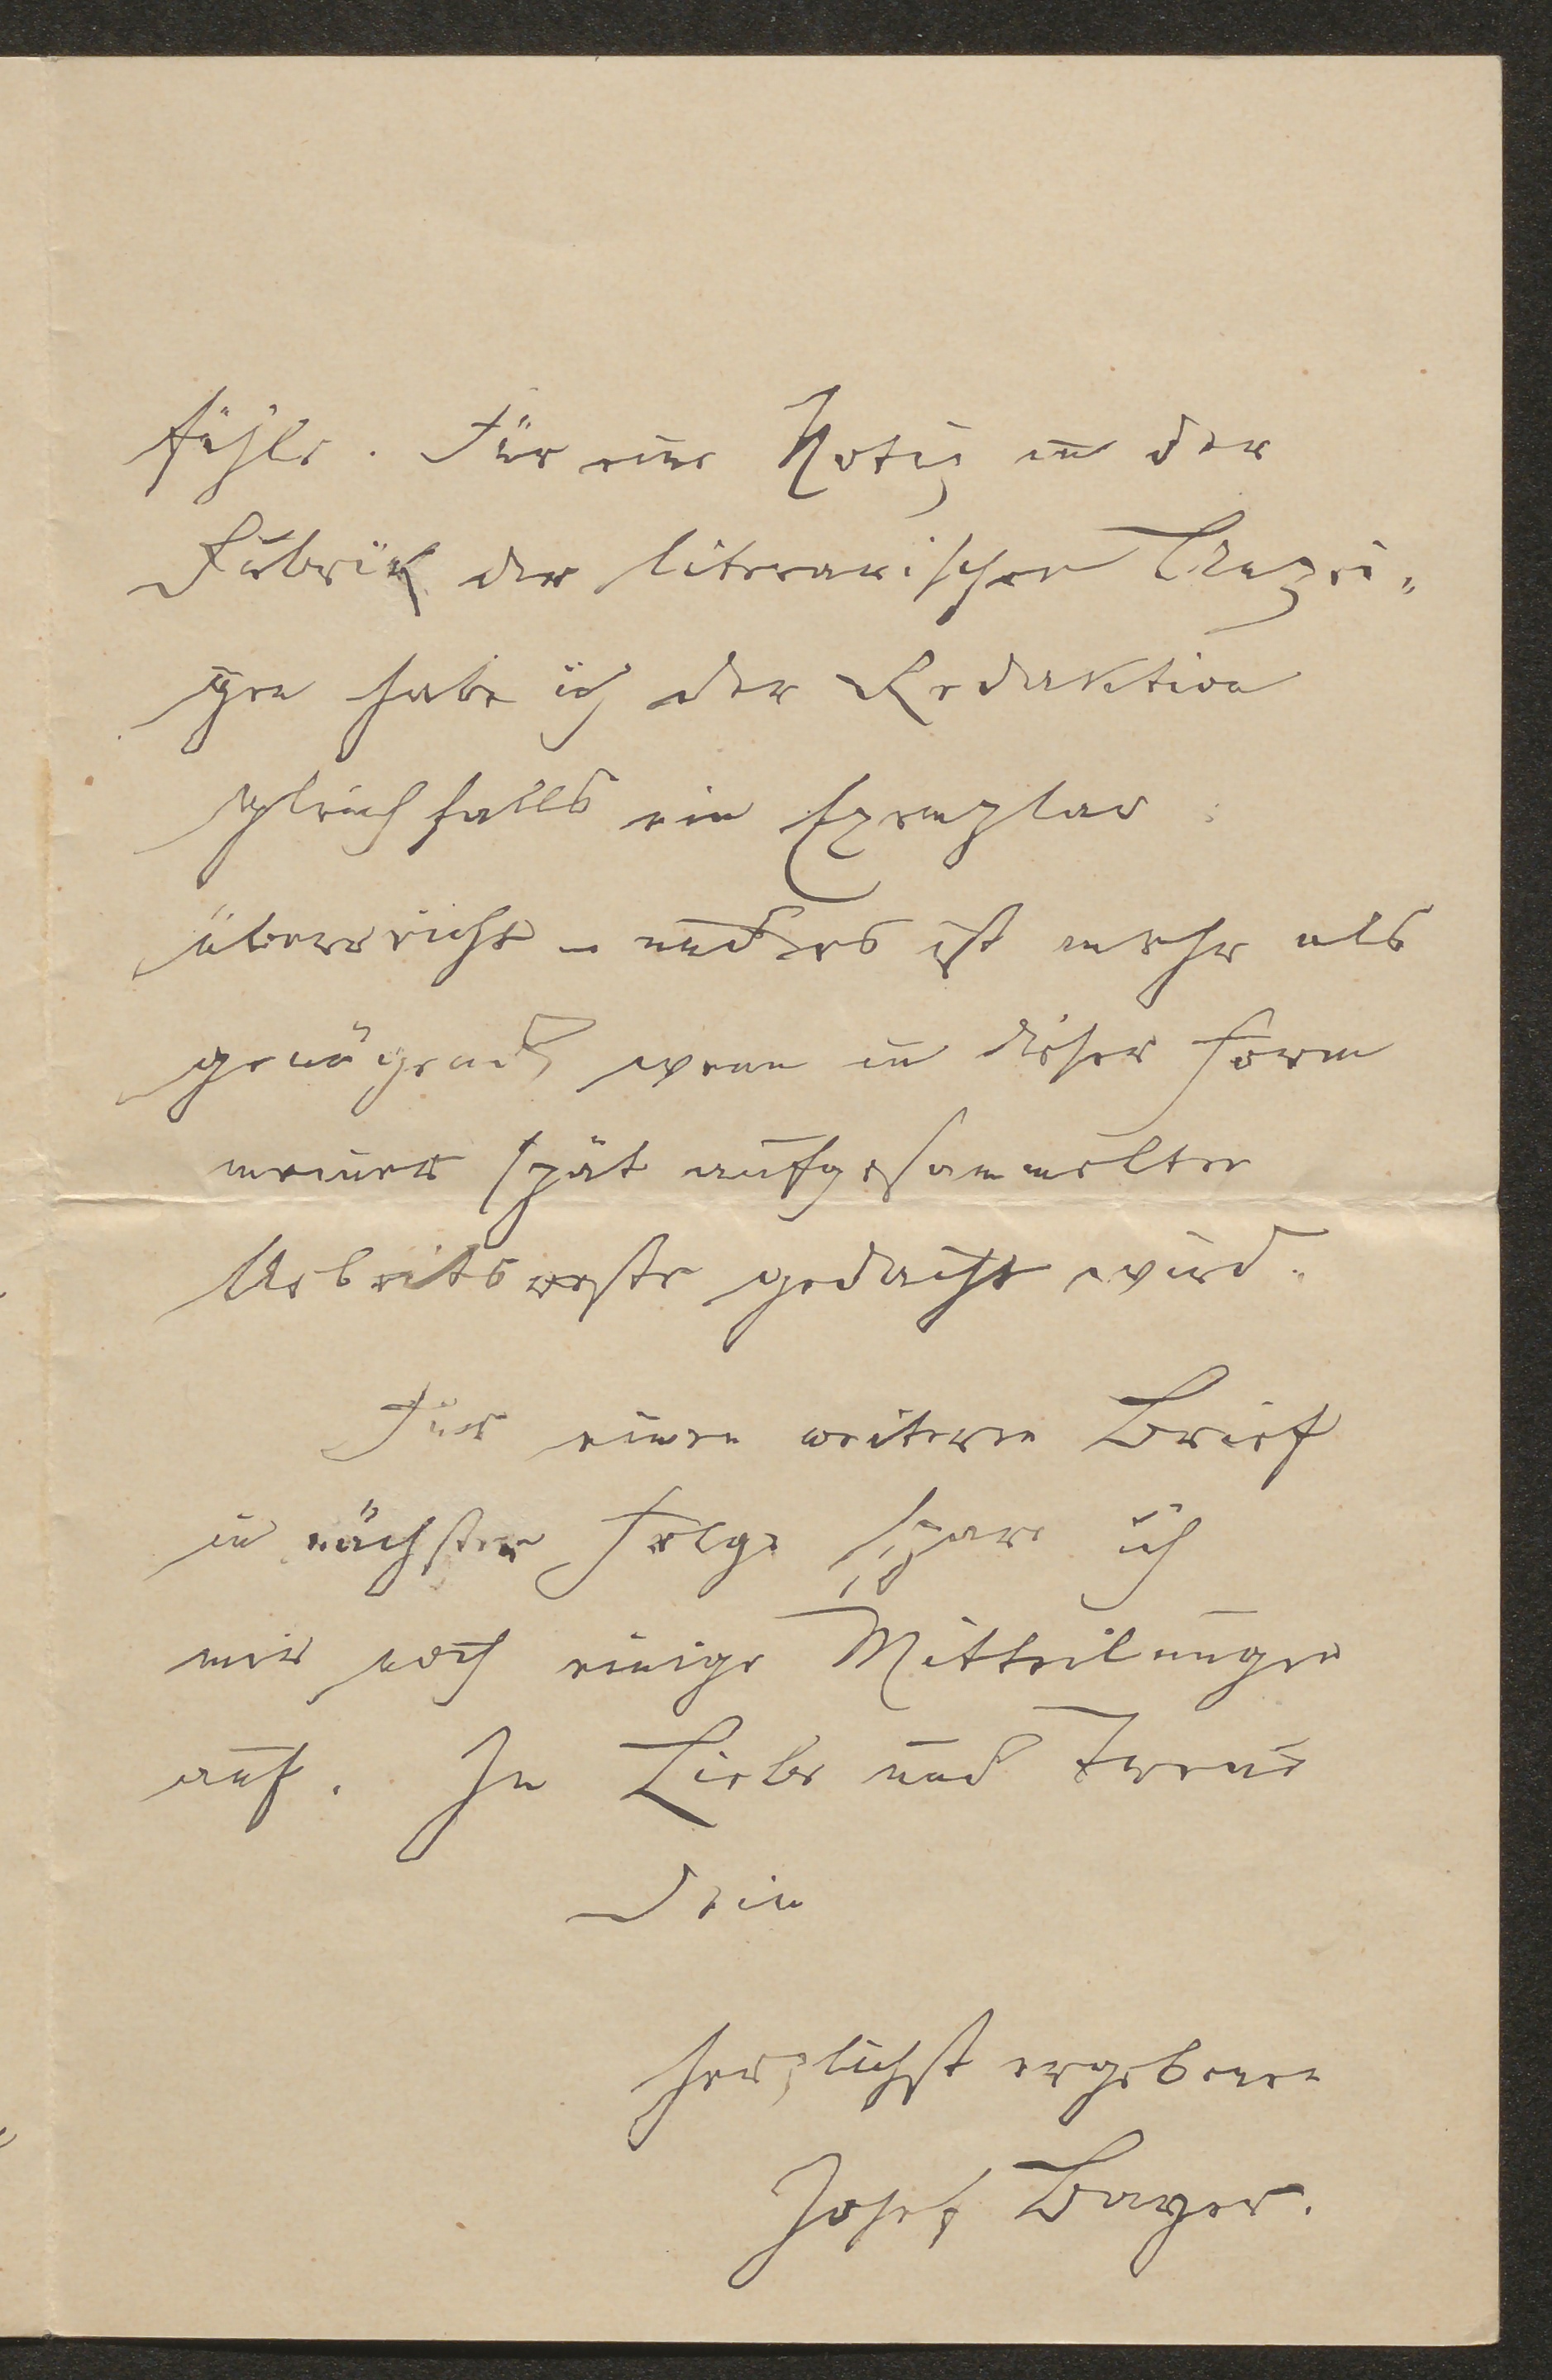 fühle. Für eine Notiz in der
Rubrik der literarischen Anzei-
gen habe ich der Redaktion
gleichfalls ein Exemplar
überreicht – und es ist mehr als
genügend, wenn in dieser Form
meiner spät aufgesammelten
Arbeitsreste gedacht wird.
Für einen weiteren Brief
in nächster Folge spare ich
mir noch einige Mittheilungen
auf. In Liebe und Treue
Dein
herzlichst ergebener
Josef Bayer.